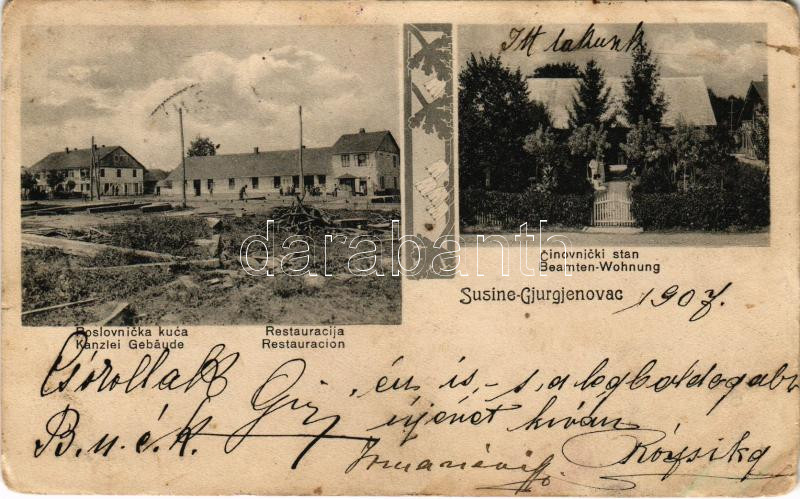 Itt lakunk
Činovnički stan
Beamten-Wohnung
Susine-Gjurgjenovac 1907.
Poslovnička kuća
Kanzlei Gebäude
Restauracija
Restauracion
Csórollak én is, s a legboldogabb
B. u. é. k. újévet kíván
Rózsika
darabanth